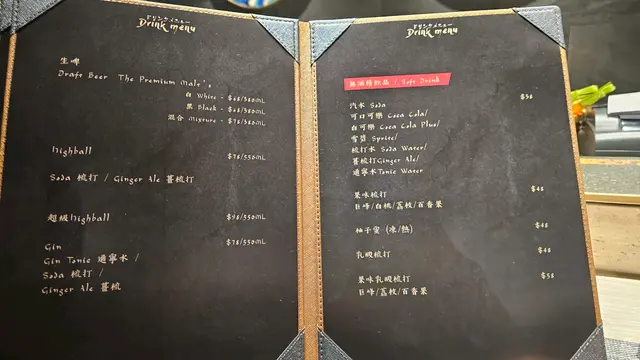 ドリンクメニュー
Drink menu
生啤
Draft Beer The Premium Malt's
白 White - $68/380ML
黑 Black - $68/380ML
混合 Mixture - $78/380ML
Highball $78/350ML
Soda 梳打 / Ginger Ale 薑梳打
超級Highball $98/550ML
Gin $78/350ML
Gin Tonic 通寧水 /
Soda 梳打 /
Ginger Ale 薑梳
ドリンクメニュー
Drink menu
無酒精飲品 / Soft Drink
汽水 Soda $38
可口可樂 Coca Cola/
白可樂 Coca Cola Plus/
雪碧 Sprite/
梳打水 Soda Water/
薑梳打Ginger Ale/
通寧水Tonic Water
果味梳打 $48
巨峰/白桃/荔枝/百香果
柚子蜜 (凍/熱) $48
乳酸梳打 $48
果味乳酸梳打 $58
巨峰/荔枝/百香果